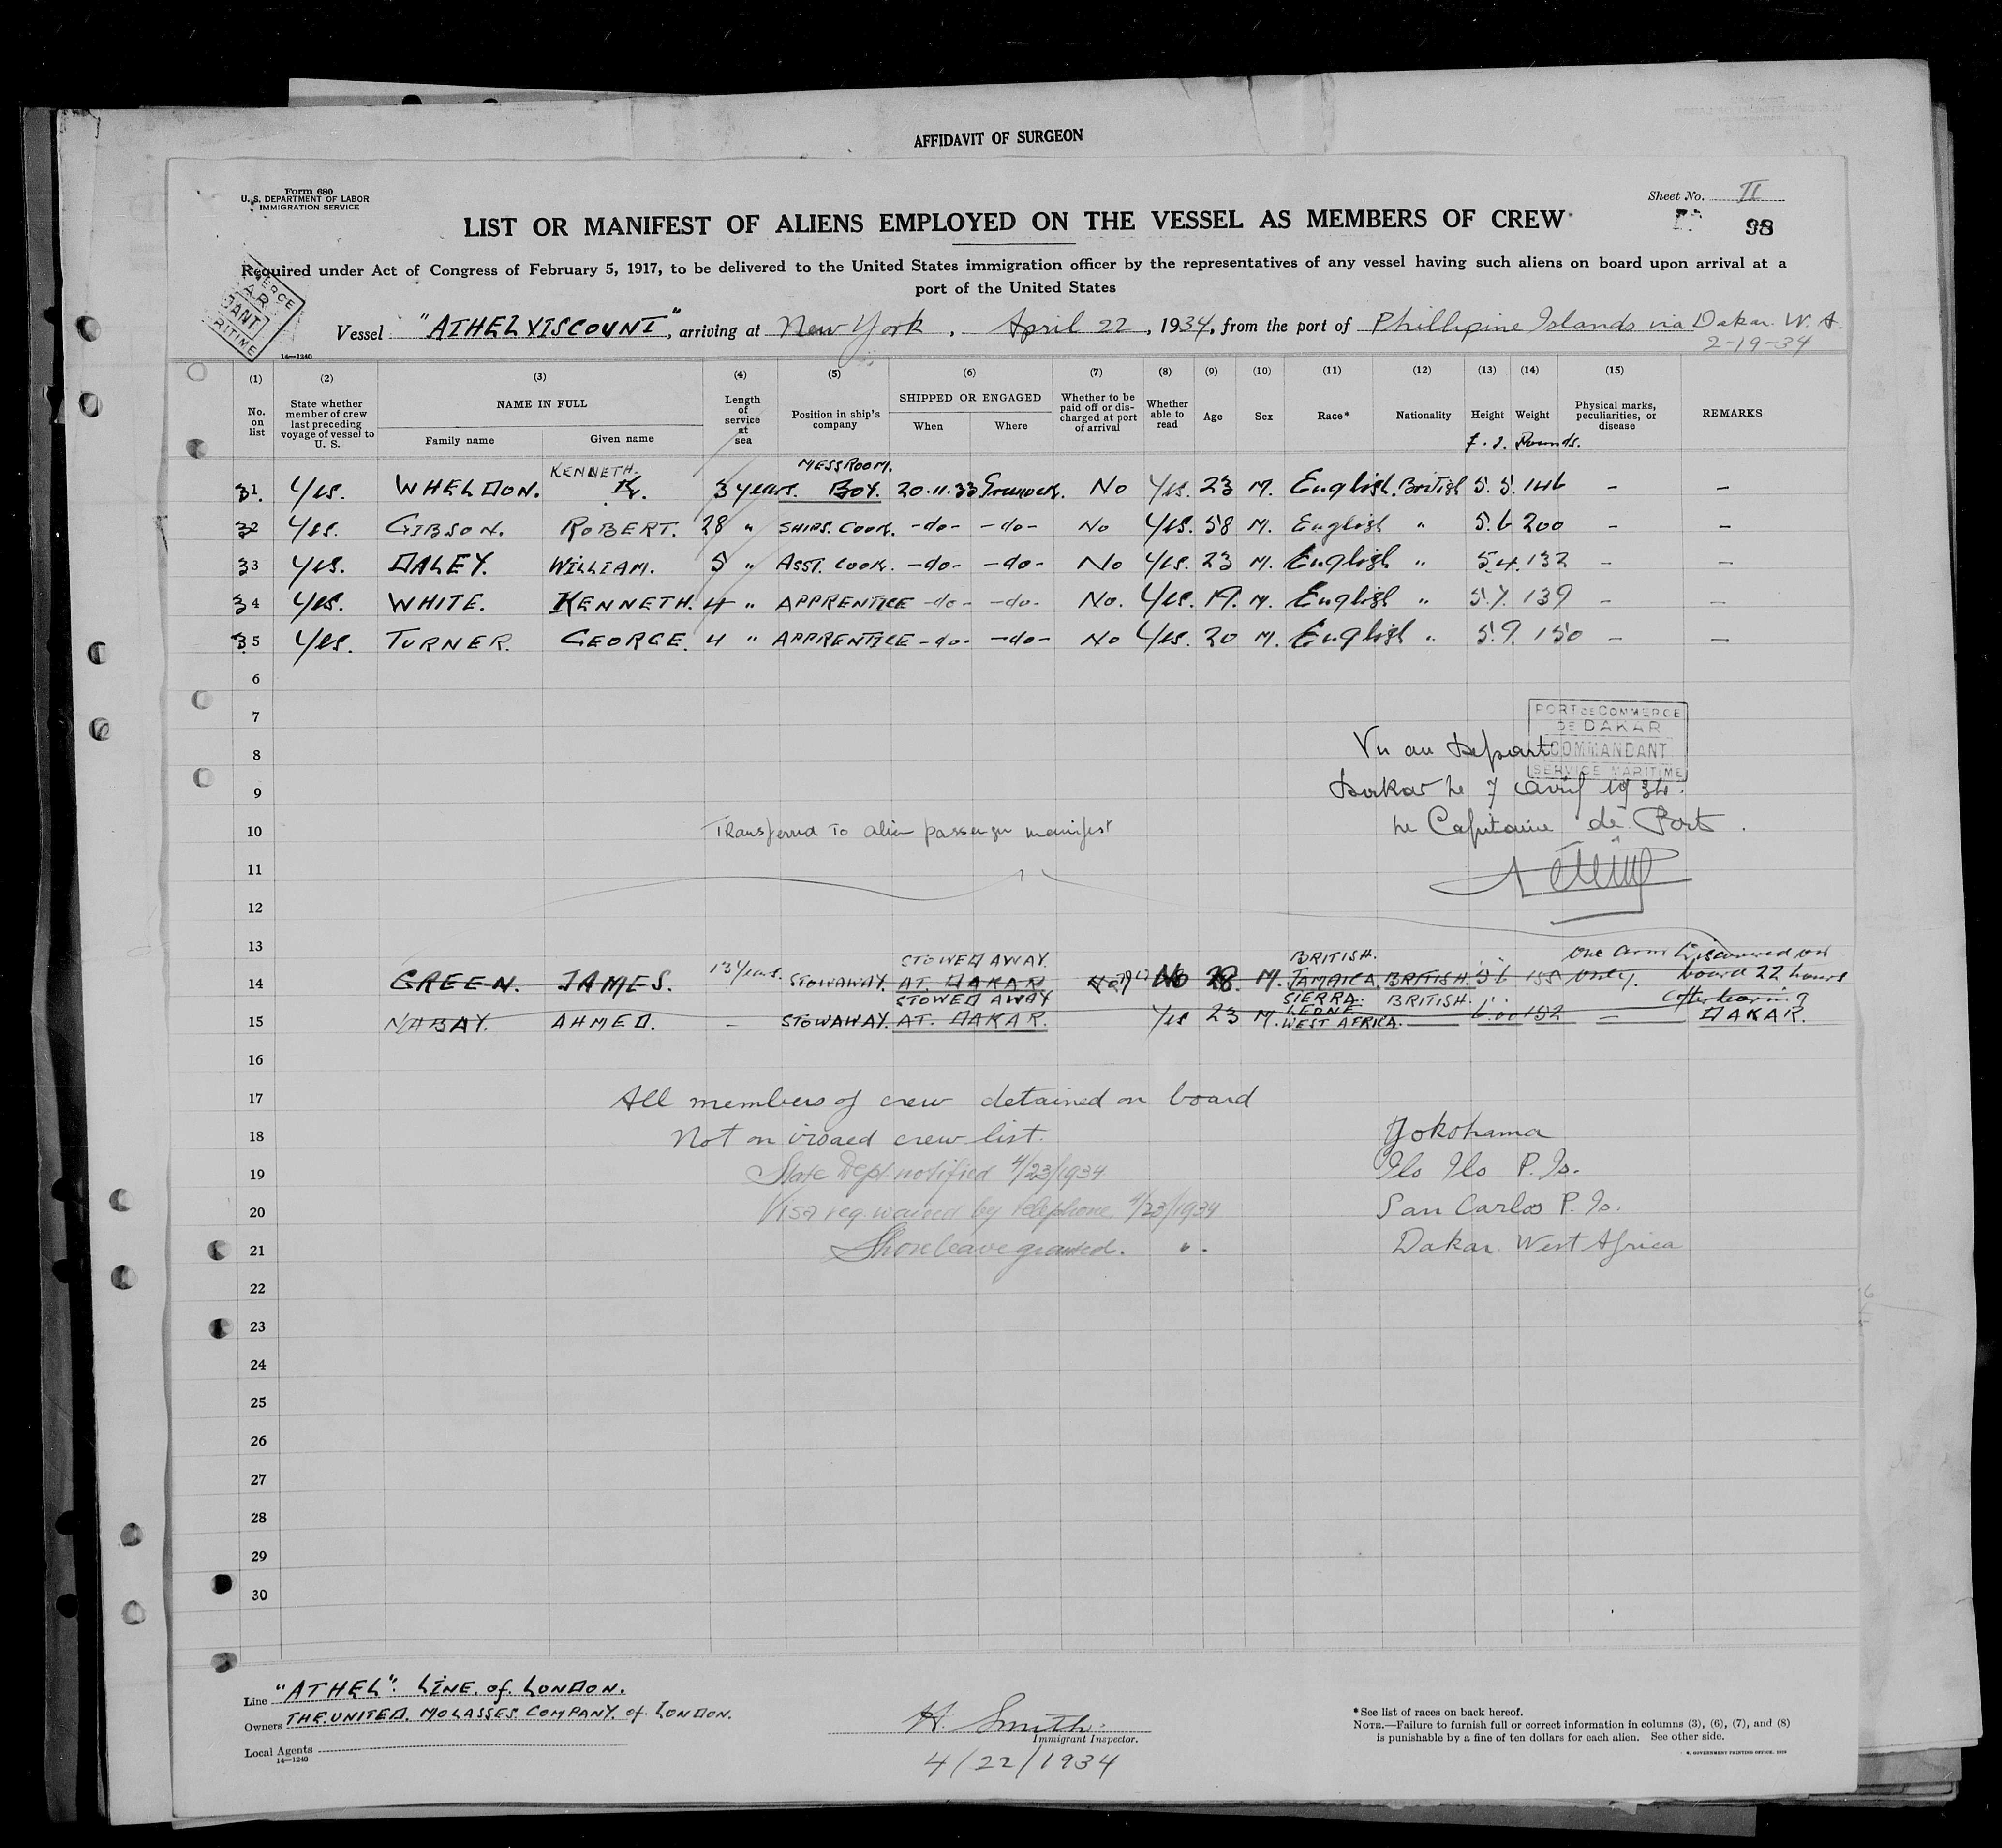 AFFIDAVIT OF SURGEON
Form 680
U. S. DEPARTMENT OF LABOR
IMMIGRATION SERVICE
Sheet No. II
98
LIST OR MANIFEST OF ALIENS EMPLOYED ON THE VESSEL AS MEMBERS OF CREW
Required under Act of Congress of February 5, 1917, to be delivered to the United States immigration officer by the representatives of any vessel having such aliens on board upon arrival at a
port of the United States
Vessel "ATHELVISCOUNT", arriving at New York, April 22, 1934, from the port of Phillipine Islands via Dakar. W. A.
2-19-34
14—1240
(1) (2) (3) (4) (5) (6) (7) (8) (9) (10) (11) (12) (13) (14) (15)
No. on list
State whether member of crew last preceding voyage of vessel to U. S.
NAME IN FULL
Family name Given name
Length of service at sea
Position in ship's company
SHIPPED OR ENGAGED
When Where
Whether to be paid off or discharged at port of arrival
Whether able to read
Age Sex Race* Nationality Height Weight
Physical marks, peculiarities, or disease
REMARKS
Pounds.
KENNETH. MESSROOM.
31. Yes. WHELDON. K. 3 years. BOY. 20.11.33 Greenock. No Yes. 23 M. English. British 5. 5. 146 - -
32 Yes. GIBSON. ROBERT. 28 " SHIPS. COOK. -do- -do- No Yes. 58 M. English " 5.6 200 - -
33 Yes. DALEY. WILLIAM. 5 " ASST. COOK. -do- -do- No Yes. 23 M. English " 5.4. 132 - -
34 Yes. WHITE. KENNETH. 4 " APPRENTICE -do- -do- No. Yes. 19. M. English " 5.7. 139 - -
35 Yes. TURNER. GEORGE. 4 " APPRENTICE -do- -do- No Yes. 20 M. English " 5.9. 150 - -
6
7
PORT DE COMMERCE
DE DAKAR
COMMANDANT
SERVICE MARITIME
8 Vu au Départ
9 Dakar le 7 avril 1934.
10 Transferred to alien passenger manifest Le Capitaine de Port.
11
12
13
STOWED AWAY. BRITISH. One arm Discovered on
14 GREEN. JAMES. 13 years. STOWAWAY. AT. DAKAR No 28. M. JAMAICA. BRITISH. 5 6 155 only. board 22 hours
STOWED AWAY SIERRA. BRITISH. after leaving
15 NABAY. AHMED. - STOWAWAY. AT. DAKAR. Yes 23 M. LEONE WEST AFRICA. 6.00 152 - DAKAR.
16
17 All members of crew detained on board
18 Not on visaed crew list. Yokohama
19 State Dept notified 4/23/1934 Ilo Ilo P. Is.
20 Visa req. waived by telephone 4/23/1934 San Carlos P. Is.
21 Shore leave granted. " Dakar West Africa
22
23
24
25
26
27
28
29
30
Line "ATHEL". LINE. of. LONDON.
Owners THE. UNITED. MOLASSES COMPANY. of. LONDON.
Local Agents
14—1240
H. Smith.
Immigrant Inspector.
4/22/1934
*See list of races on back hereof.
NOTE.—Failure to furnish full or correct information in columns (3), (6), (7), and (8)
is punishable by a fine of ten dollars for each alien. See other side.